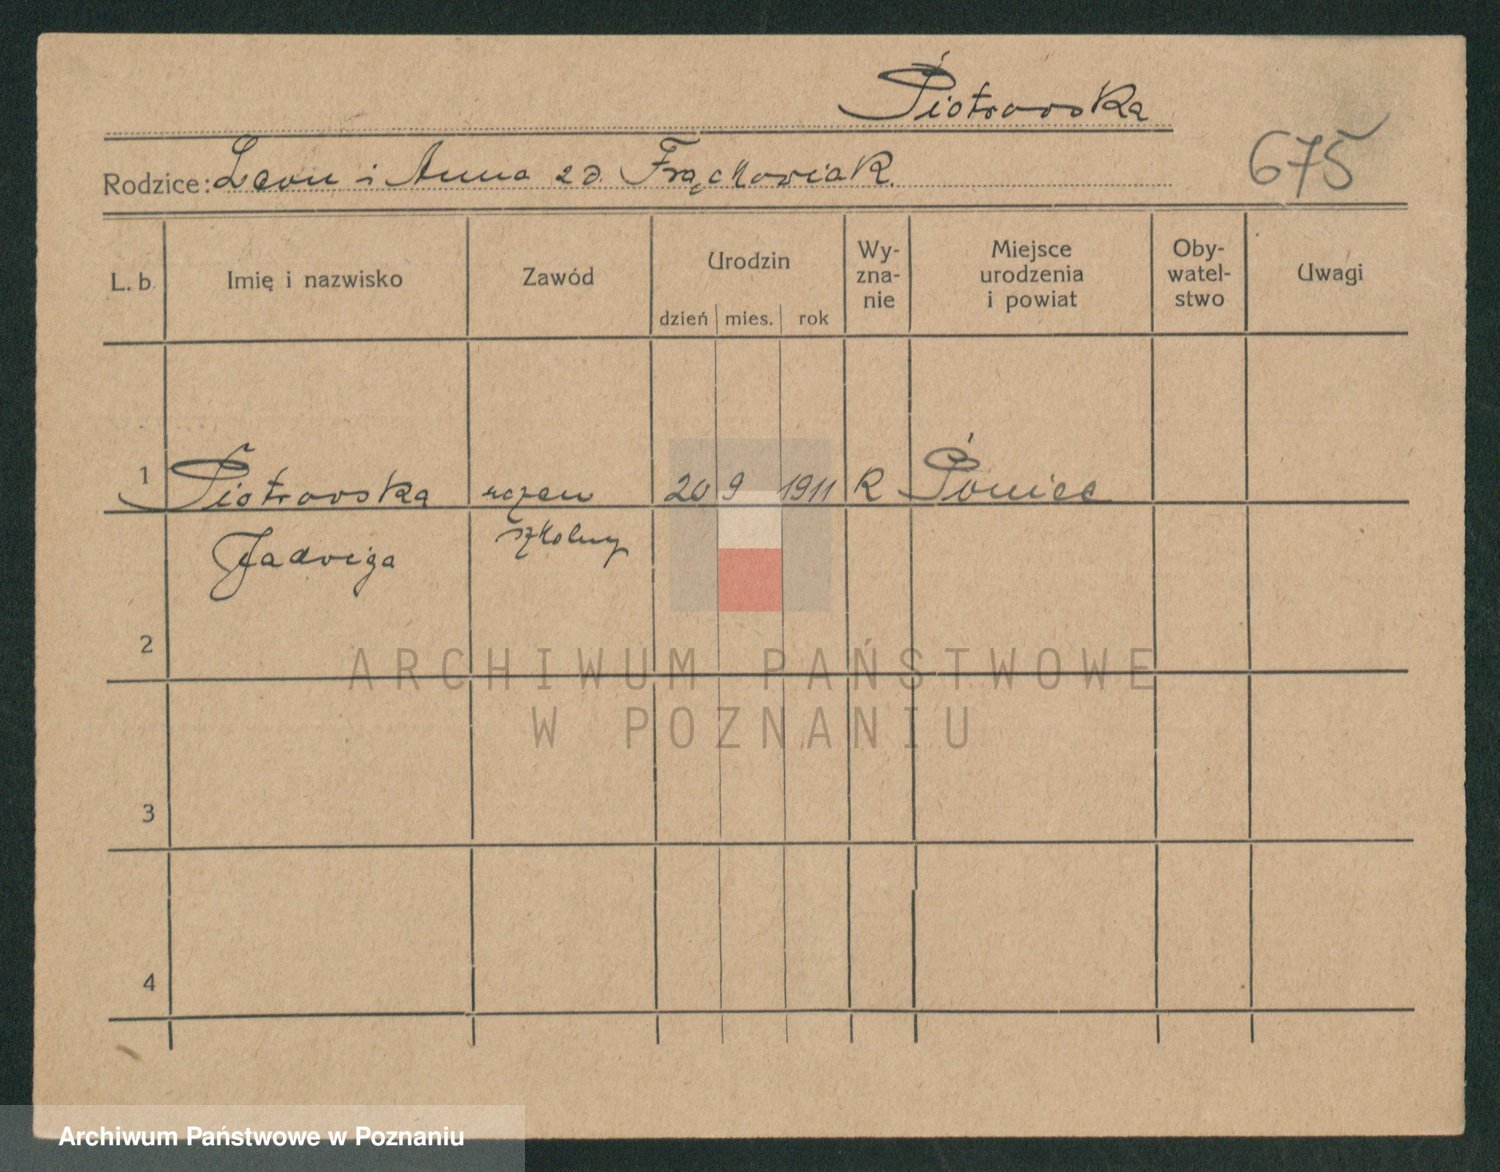 Piotrowska
Rodzice: Leon i Anna zd. Frąckowiak.
675
L. b. Imię i nazwisko Zawód Urodzin Wy-zna-nie Miejsce urodzenia i powiat Oby-watel-stwo Uwagi
dzień mies. rok
1 Piotrowska uczen 20 9 1911 R Poniec
Jadwiga szkolny
2
ARCHIWUM PAŃSTWOWE
W POZNANIU
3
4
Archiwum Państwowe w Poznaniu